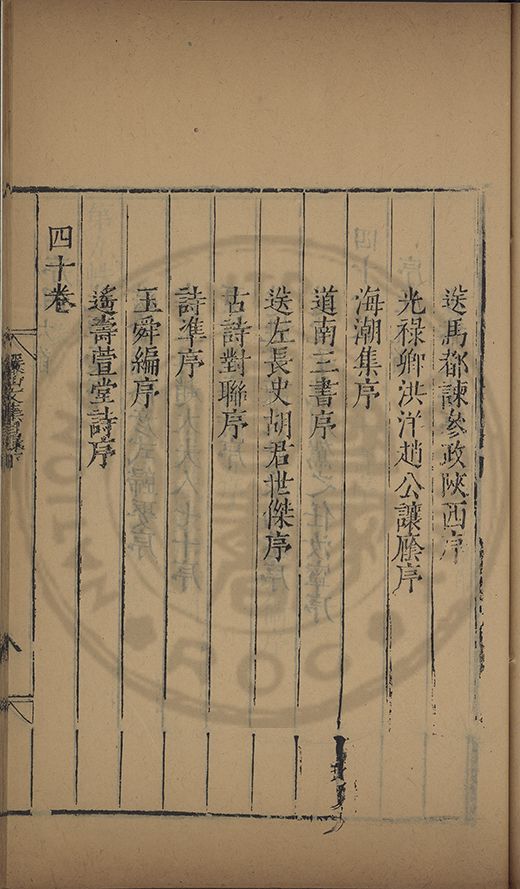 送馬都諫參政陝西序
光祿卿洪洋趙公讓廕序
海潮集序
道南三書序
送左長史胡君世傑序
古詩對聯序
詩準序
玉舜編序
遙壽萱堂詩序
四十卷
八